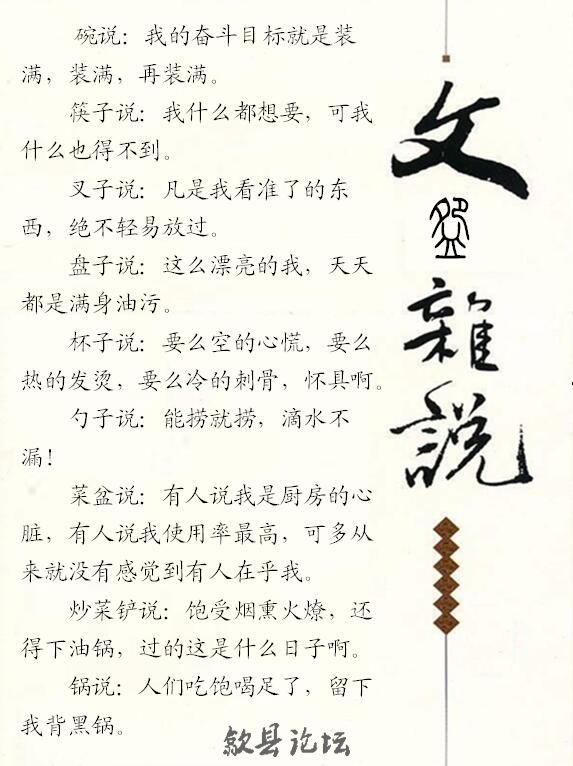 碗说：我的奋斗目标就是装
满，装满，再装满。
筷子说：我什么都想要，可我
什么也得不到。
叉子说：凡是我看准了的东
西，绝不轻易放过。
盘子说：这么漂亮的我，天天
都是满身油污。
杯子说：要么空的心慌，要么
热的发烫，要么冷的刺骨，怀具啊。
勺子说：能捞就捞，滴水不
漏！
菜盆说：有人说我是厨房的心
脏，有人说我使用率最高，可多从
来就没有感觉到有人在乎我。
炒菜铲说：饱受烟熏火燎，还
得下油锅，过的这是什么日子啊。
锅说：人们吃饱喝足了，留下
我背黑锅。
文
雜
説
歙县论坛